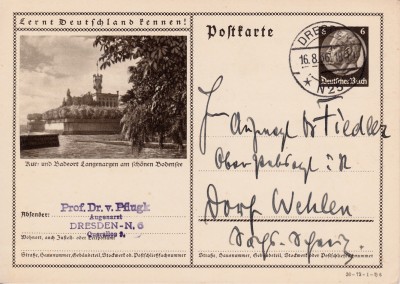 Lernt Deutschland kennen!
Kur- und Badeort Langenargen am schönen Bodensee
Absender:
Prof. Dr. v. Pflugk
Augenarzt
DRESDEN-N, 6
Wohnort, auch Zustell- oder Leitpostamt
Straße, Hausnummer, Gebäudeteil, Stockwerk od. Postschließfachnummer
Postkarte
DRESDEN
16.8.
N 23
6 6
Deutsches Reich
Herrn
Augenarzt Dr Fiedler
Oberstabsarzt i R
Dorf Wehlen
Sächs. Schweiz
Straße, Hausnummer, Gebäudeteil, Stockwerk oder Postschließfachnummer